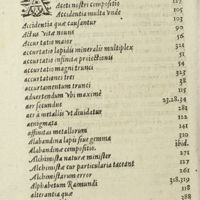 Aceti nostri compositio 117
Accidentia multa vnde 105
Accidentia quæ causantur 103
Actus vita nouus 90
accurtatio maior 56
accurtatio lapidis mineralis multiplex 51
accurtatio infinita proiectionis 51
accurtatio magni trunci 325
accurtationes tres 38
accurtamentum trunci 315
aduertendum vbi maximè
aer secundus 23.28.34
aer à metallis vt diuidatur 281
ænigmata 110
affinitas metallorum 231
Alabandina lapis siue gemma ibid.
Alabandinæ compositio. 131
Alchimista naturæ minister
Alchimistæ cur particularia taceant 161
Alchimistarum error 318.319
Alphabetum Raimundi 118
alterantia quæ 388